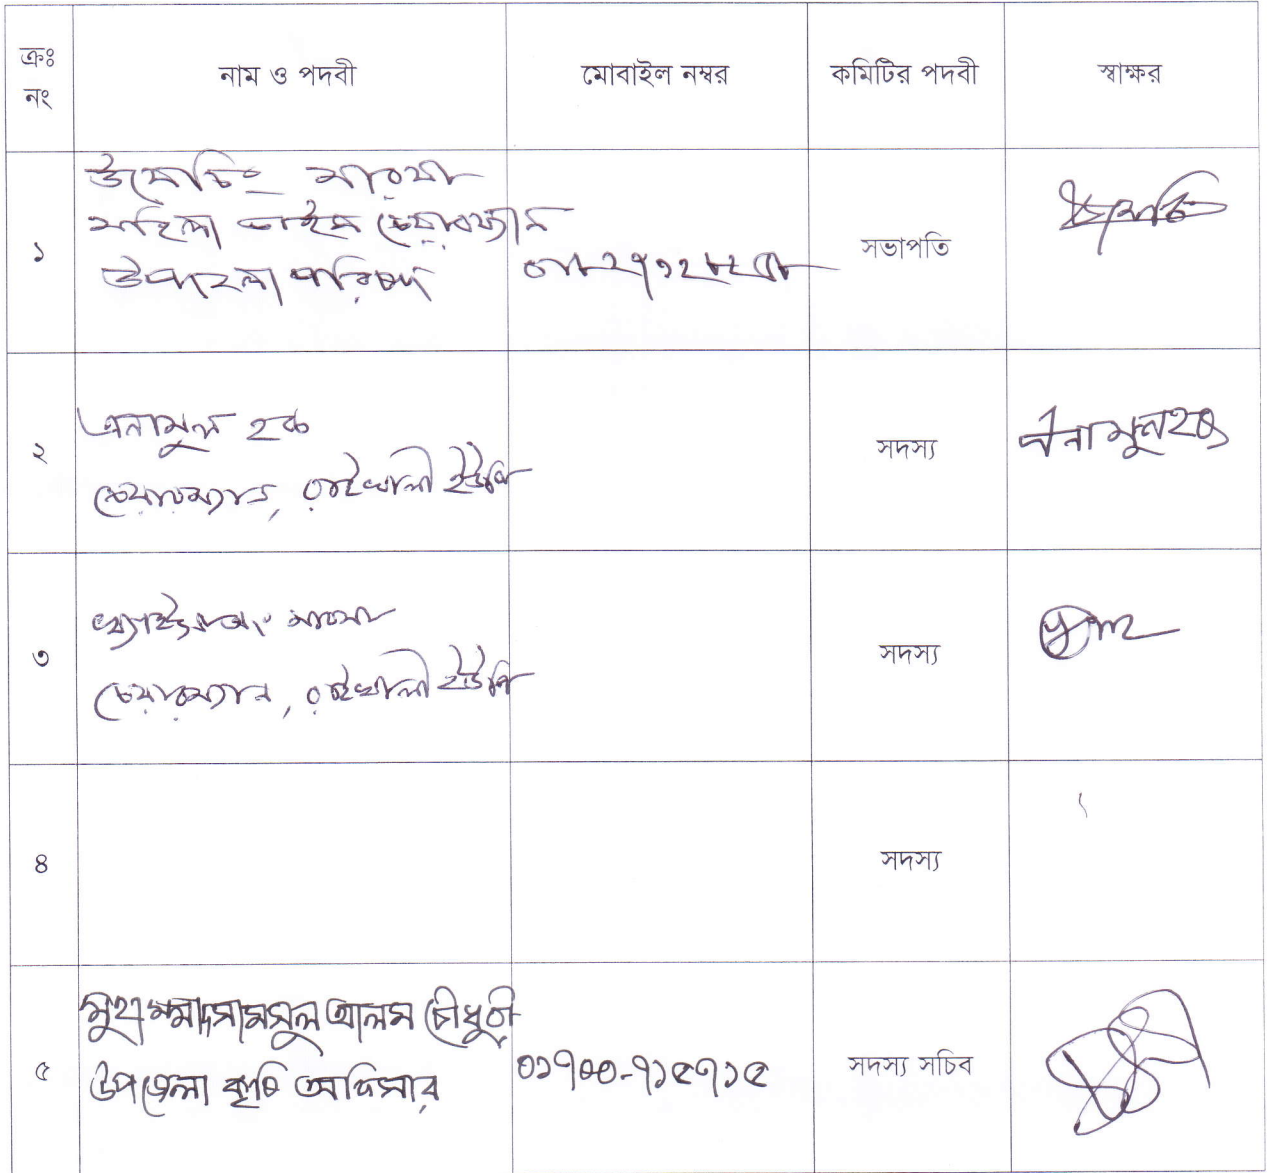 ক্রঃ
নং
নাম ও পদবী
মোবাইল নম্বর
কমিটির পদবী
স্বাক্ষর
১
মারমা
মহিলা ভাইস চেয়ারম্যান
উপজেলা পরিষদ
সভাপতি
২
এনামুল হক
চেয়ারম্যান, রাইখালী ইউপি
সদস্য
এনামুল হক
৩
মারমা
চেয়ারম্যান, রাইখালী ইউপি
সদস্য
৪
সদস্য
৫
মুহাম্মদ সামসুল আলম চৌধুরী
উপজেলা কৃষি অফিসার
০১৭০০-৭১৫৭১৫
সদস্য সচিব